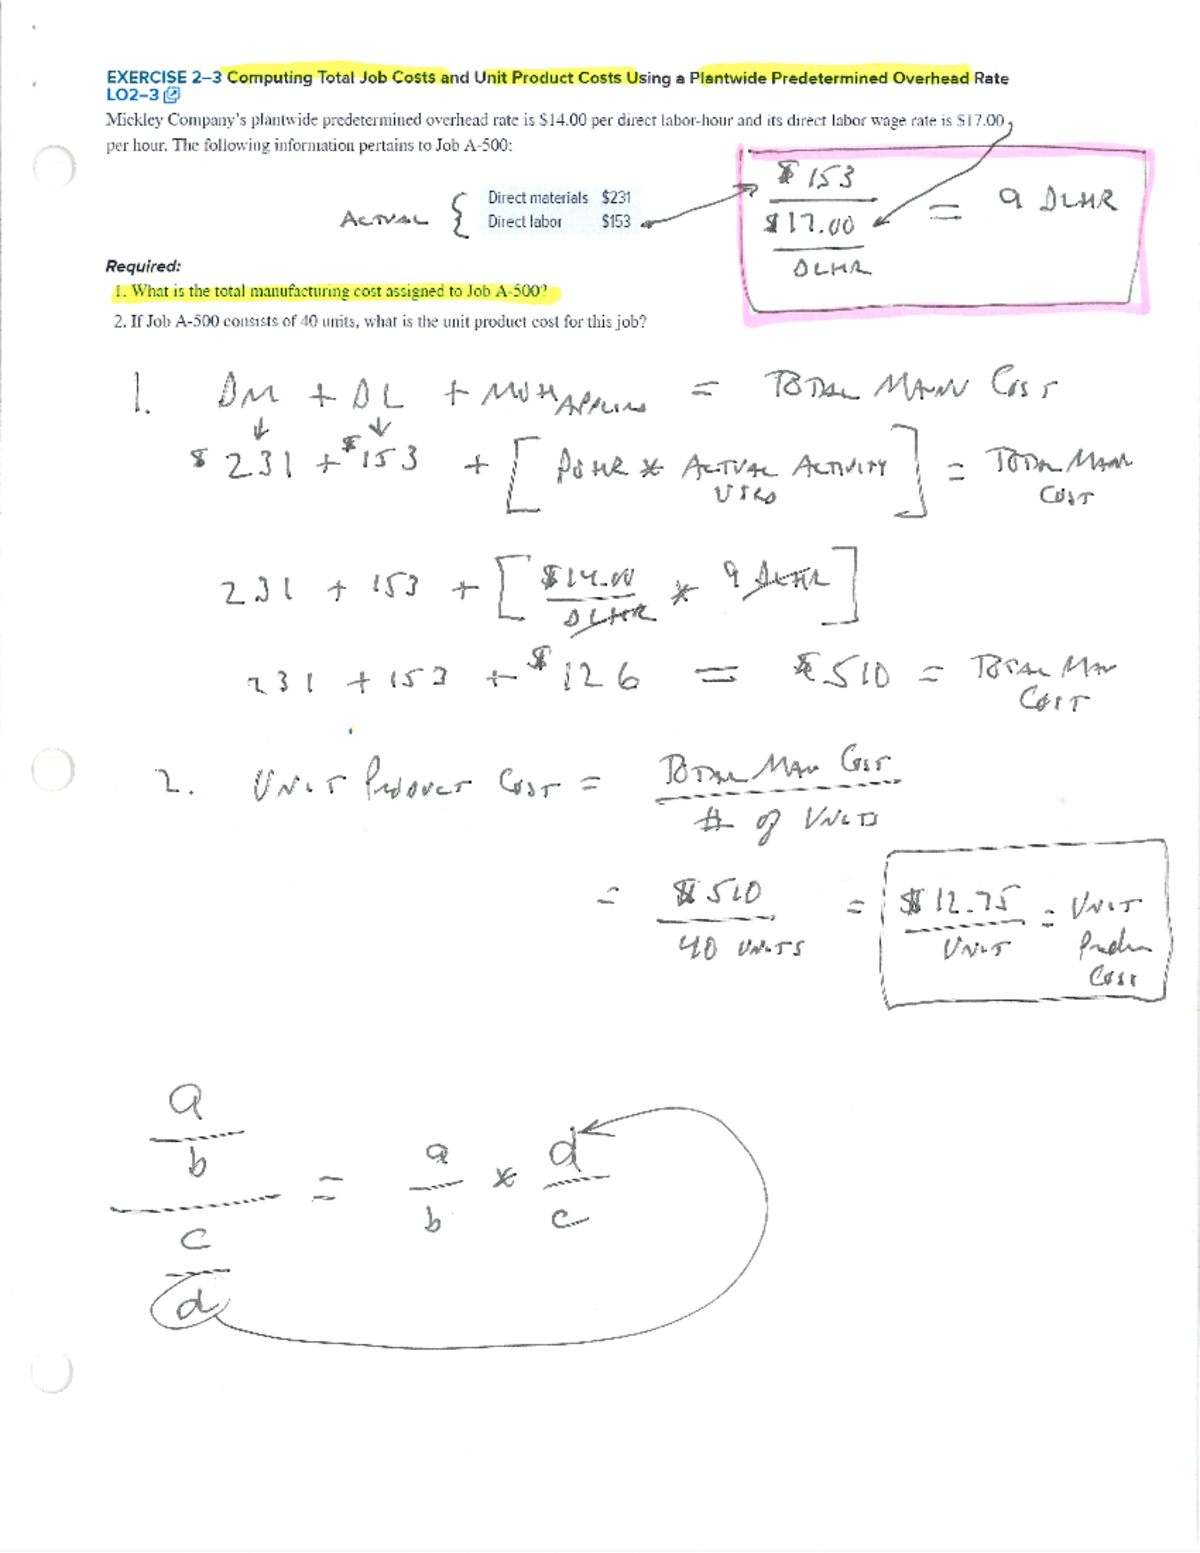 EXERCISE 2–3 Computing Total Job Costs and Unit Product Costs Using a Plantwide Predetermined Overhead Rate
LO2–3
Mickley Company's plantwide predetermined overhead rate is $14.00 per direct labor-hour and its direct labor wage rate is $17.00
per hour. The following information pertains to Job A-500:
ACTUAL { Direct materials $231
Direct labor $153
$153
$17.00
DLHR
= 9 DLHR
Required:
1. What is the total manufacturing cost assigned to Job A-500?
2. If Job A-500 consists of 40 units, what is the unit product cost for this job?
1. DM + DL + MOH APPLIED = TOTAL MANU COST
$231 + $153 + [ POHR * ACTUAL ACTIVITY USED ] = TOTAL MANU COST
231 + 153 + [ $14.00 / DLHR * 9 DLHR ]
231 + 153 + $126 = $510 = TOTAL MAN COST
2. UNIT PRODUCT COST = TOTAL MAN COST
# of UNITS
= $510 / 40 UNITS = $12.75 / UNIT = UNIT Produ COST
a
b
c
d
= a / b * d / c